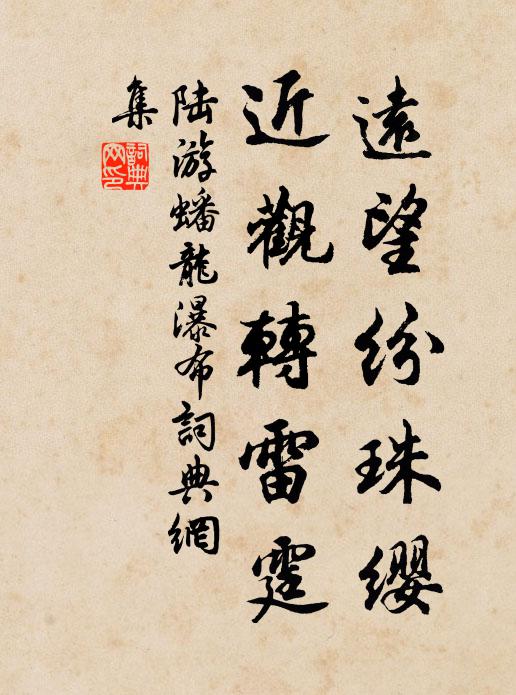 遠望紛珠纓
近觀轉雷霆
陸游蟠龍瀑布詞典網
集
詞典
网印